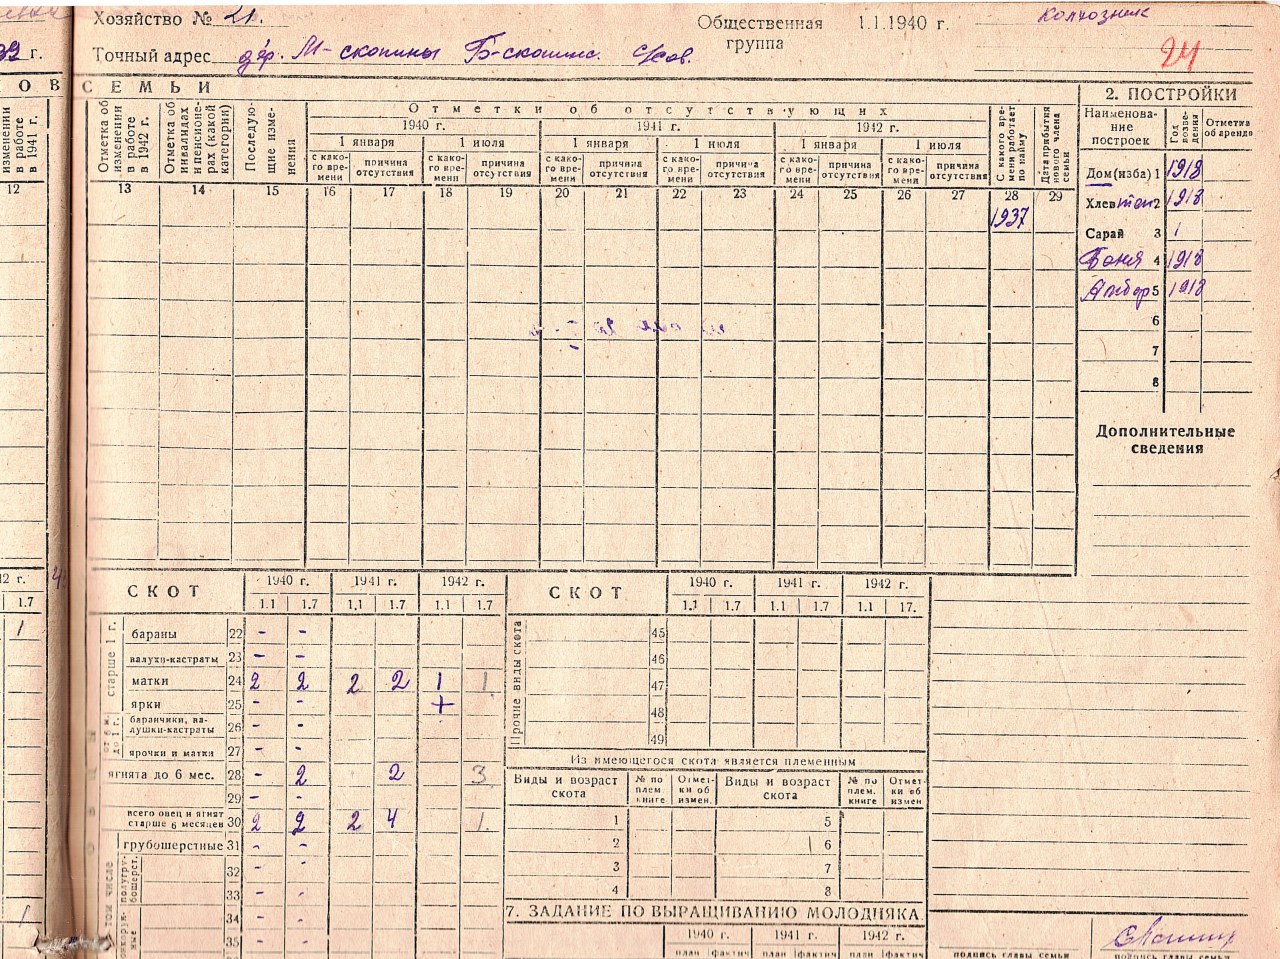 Хозяйство № 21.
Общественная группа 1.1.1940 г. колхозник
24
Точный адрес дер. М-скопины Б-скопинс.
39 г.
ОВ СЕМЬИ
изменении в работе в 1941 г.
Отметка об изменении в работе в 1942 г.
Отметка об инвалидах и пенсионерах (какой категории)
Последующие изменения
Отметки об отсутствующих
1940 г. 1941 г. 1942 г.
1 января 1 июля 1 января 1 июля 1 января 1 июля
с какого времени причина отсутствия с какого времени причина отсутствия с какого времени причина отсутствия с какого времени причина отсутствия с какого времени причина отсутствия с какого времени причина отсутствия
С какого времени работает по найму
Дата прибытия нового члена семьи
12 13 14 15 16 17 18 19 20 21 22 23 24 25 26 27 28 29
1937
2. ПОСТРОЙКИ
Наименование построек Год возведения Отметка об аренде
Дом (изба) 1 1918
Хлев 2 1918
Сарай 3
Баня 4 1918
Анбар 5 1918
6
7
8
Дополнительные сведения
2 г.
1.7
1
1
СКОТ 1940 г. 1941 г. 1942 г.
1.1 1.7 1.1 1.7 1.1 1.7
старше 1 г.
бараны 22 - -
валухи-кастраты 23 - -
матки 24 2 2 2 2 1 1
ярки 25 - - +
от 6 м. до 1 г.
баранчики, валушки-кастраты 26 - -
ярочки и матки 27 - -
ягнята до 6 мес. 28 - 2 2 3
29 - -
всего овец и ягнят старше 6 месяцев 30 2 2 2 4 1
в том числе
грубошерстные 31 - -
полугрубошерст.
32 - -
33 - -
34 - -
35 - -
СКОТ 1940 г. 1941 г. 1942 г.
1.1 1.7 1.1 1.7 1.1 17.
Прочие виды скота
45
46
47
48
49
Из имеющегося скота является племенным
Виды и возраст скота № по плем. книге Отметки об измен. Виды и возраст скота № по плем. книге Отметки об измен
1 5
2 6
3 7
4 8
7. ЗАДАНИЕ ПО ВЫРАЩИВАНИЮ МОЛОДНЯКА.
1940 г. 1941 г. 1942 г.
план фактич план фактич план фактич
подпись главы семьи подпись главы семьи